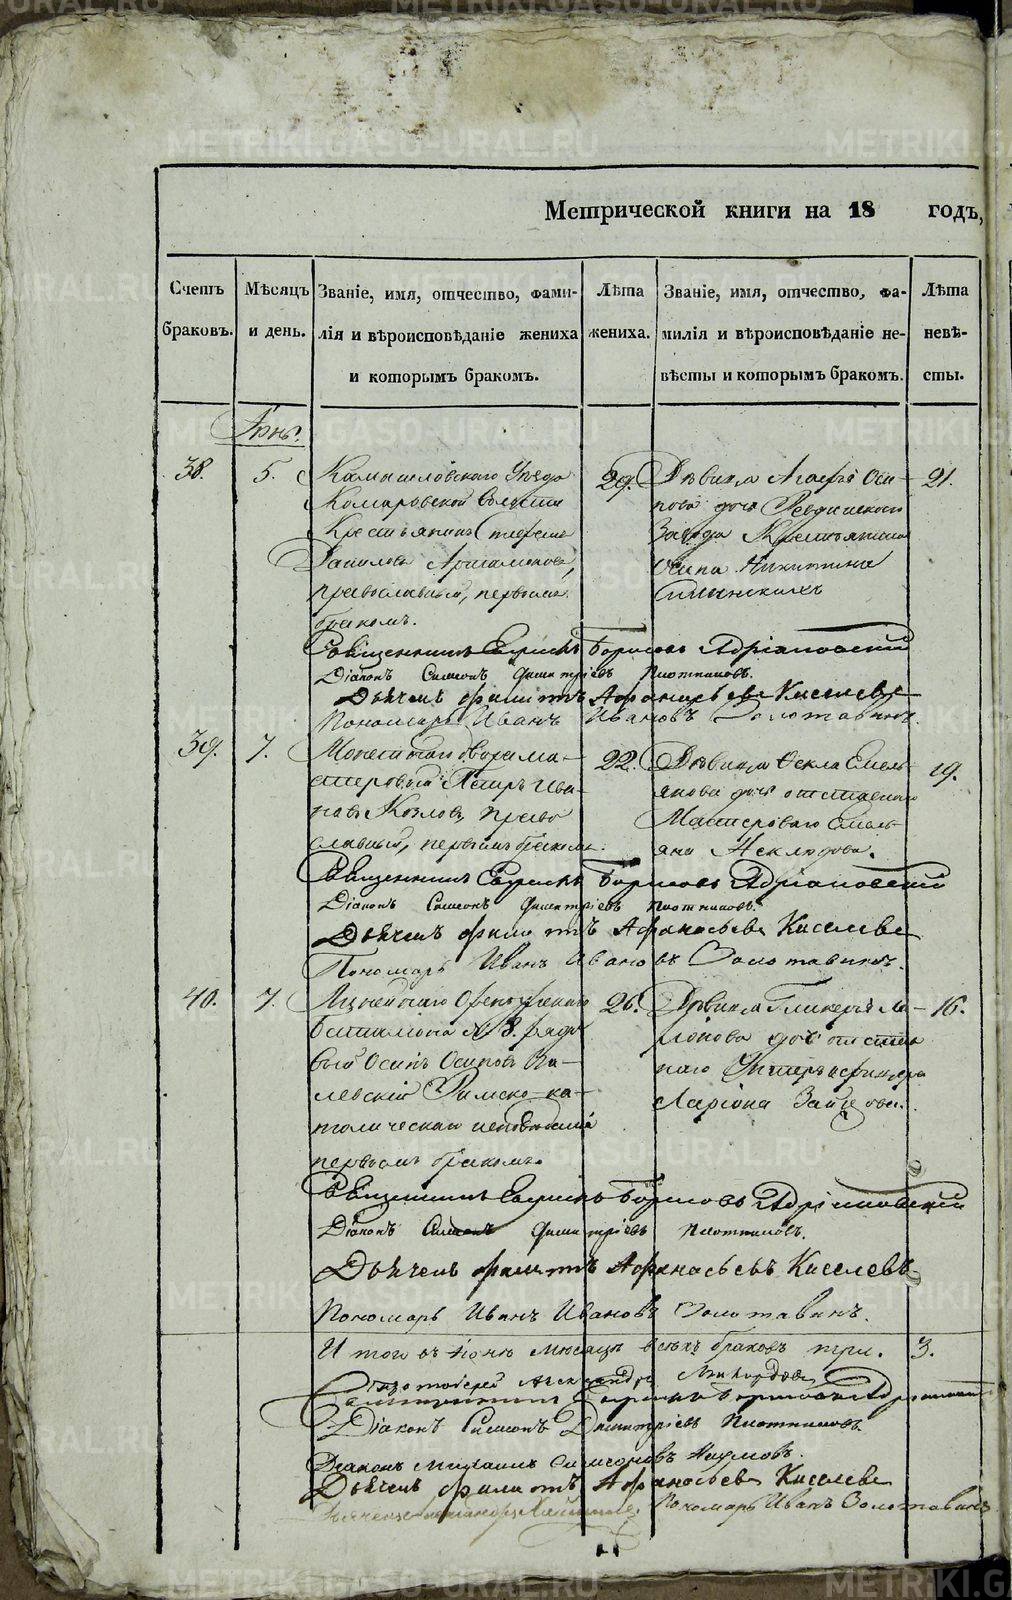 Метрической книги на 18 годъ,
Счетъ браковъ.
Мѣсяцъ и день.
Званіе, имя, отчество, фами-
лія и вѣроисповѣданіе жениха
и которымъ бракомъ.
Лѣта жениха.
Званіе, имя, отчество, фа-
милія и вѣроисповѣданіе не-
вѣсты и которымъ бракомъ.
Лѣта невѣ-
сты.
38.
5.
Камышловскаго Уѣзда
Комаровской Волости
Крестьянинъ
православный, первымъ
бракомъ.
29.
Дѣвица Агафья Оси-
пова дочь Ревдинскаго
Завода
Осипа Никитина
21.
Священникъ Борисовъ Адріановский
Діаконъ Симеонъ Димитріевъ Плотниковъ.
Дьячекъ Филиппъ Афанасьевъ Киселевъ
Пономарь Иванъ Ивановъ Золотавинъ.
39.
7.
Монетнаго двора ма-
стеровый Петръ Ива-
новъ Козловъ, право
славный, первымъ бракомъ.
22.
Дѣвица Фекла Емель-
янова дочь отставнаго
Мастероваго Емель-
яна Неклюдова.
19.
Священникъ Борисовъ Адріановский
Діаконъ Симеонъ Димитріевъ Плотниковъ.
Дьячекъ Филиппъ Афанасьевъ Киселевъ
Пономарь Иванъ Ивановъ Золотавинъ.
40.
7.
Линейнаго Оренбургскаго
Баталіона № 8. рядо
вый Осипъ Осиповъ
левскій Римско-ка-
толическаго исповѣданія
первымъ бракомъ.
26.
Дѣвица Гликерья Ла-
ріонова дочь отстав
наго Унтеръ офицера
Ларіона Зайцова.
16.
Священникъ Борисовъ Адріановский
Діаконъ Симеонъ Димитріевъ Плотниковъ.
Дьячекъ Филиппъ Афанасьевъ Киселевъ
Пономарь Иванъ Ивановъ Золотавинъ.
Итого въ Іюнѣ мѣсяцѣ всѣхъ браковъ три. 3.
Протоіерей Александръ
Діаконъ Симеонъ Димитріевъ Плотниковъ.
Діаконъ Михаилъ Симеоновъ Наумовъ.
Дьячекъ Филиппъ Афанасьевъ Киселевъ
Пономарь Иванъ Золотавинъ
METRIKI.GASO-URAL.RU